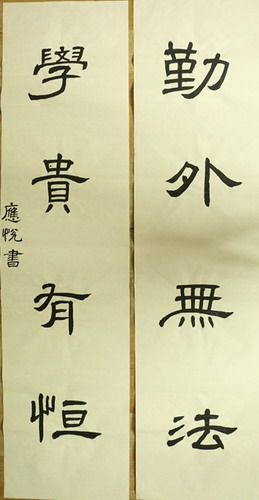 勤外無法
學貴有恒
應悅書